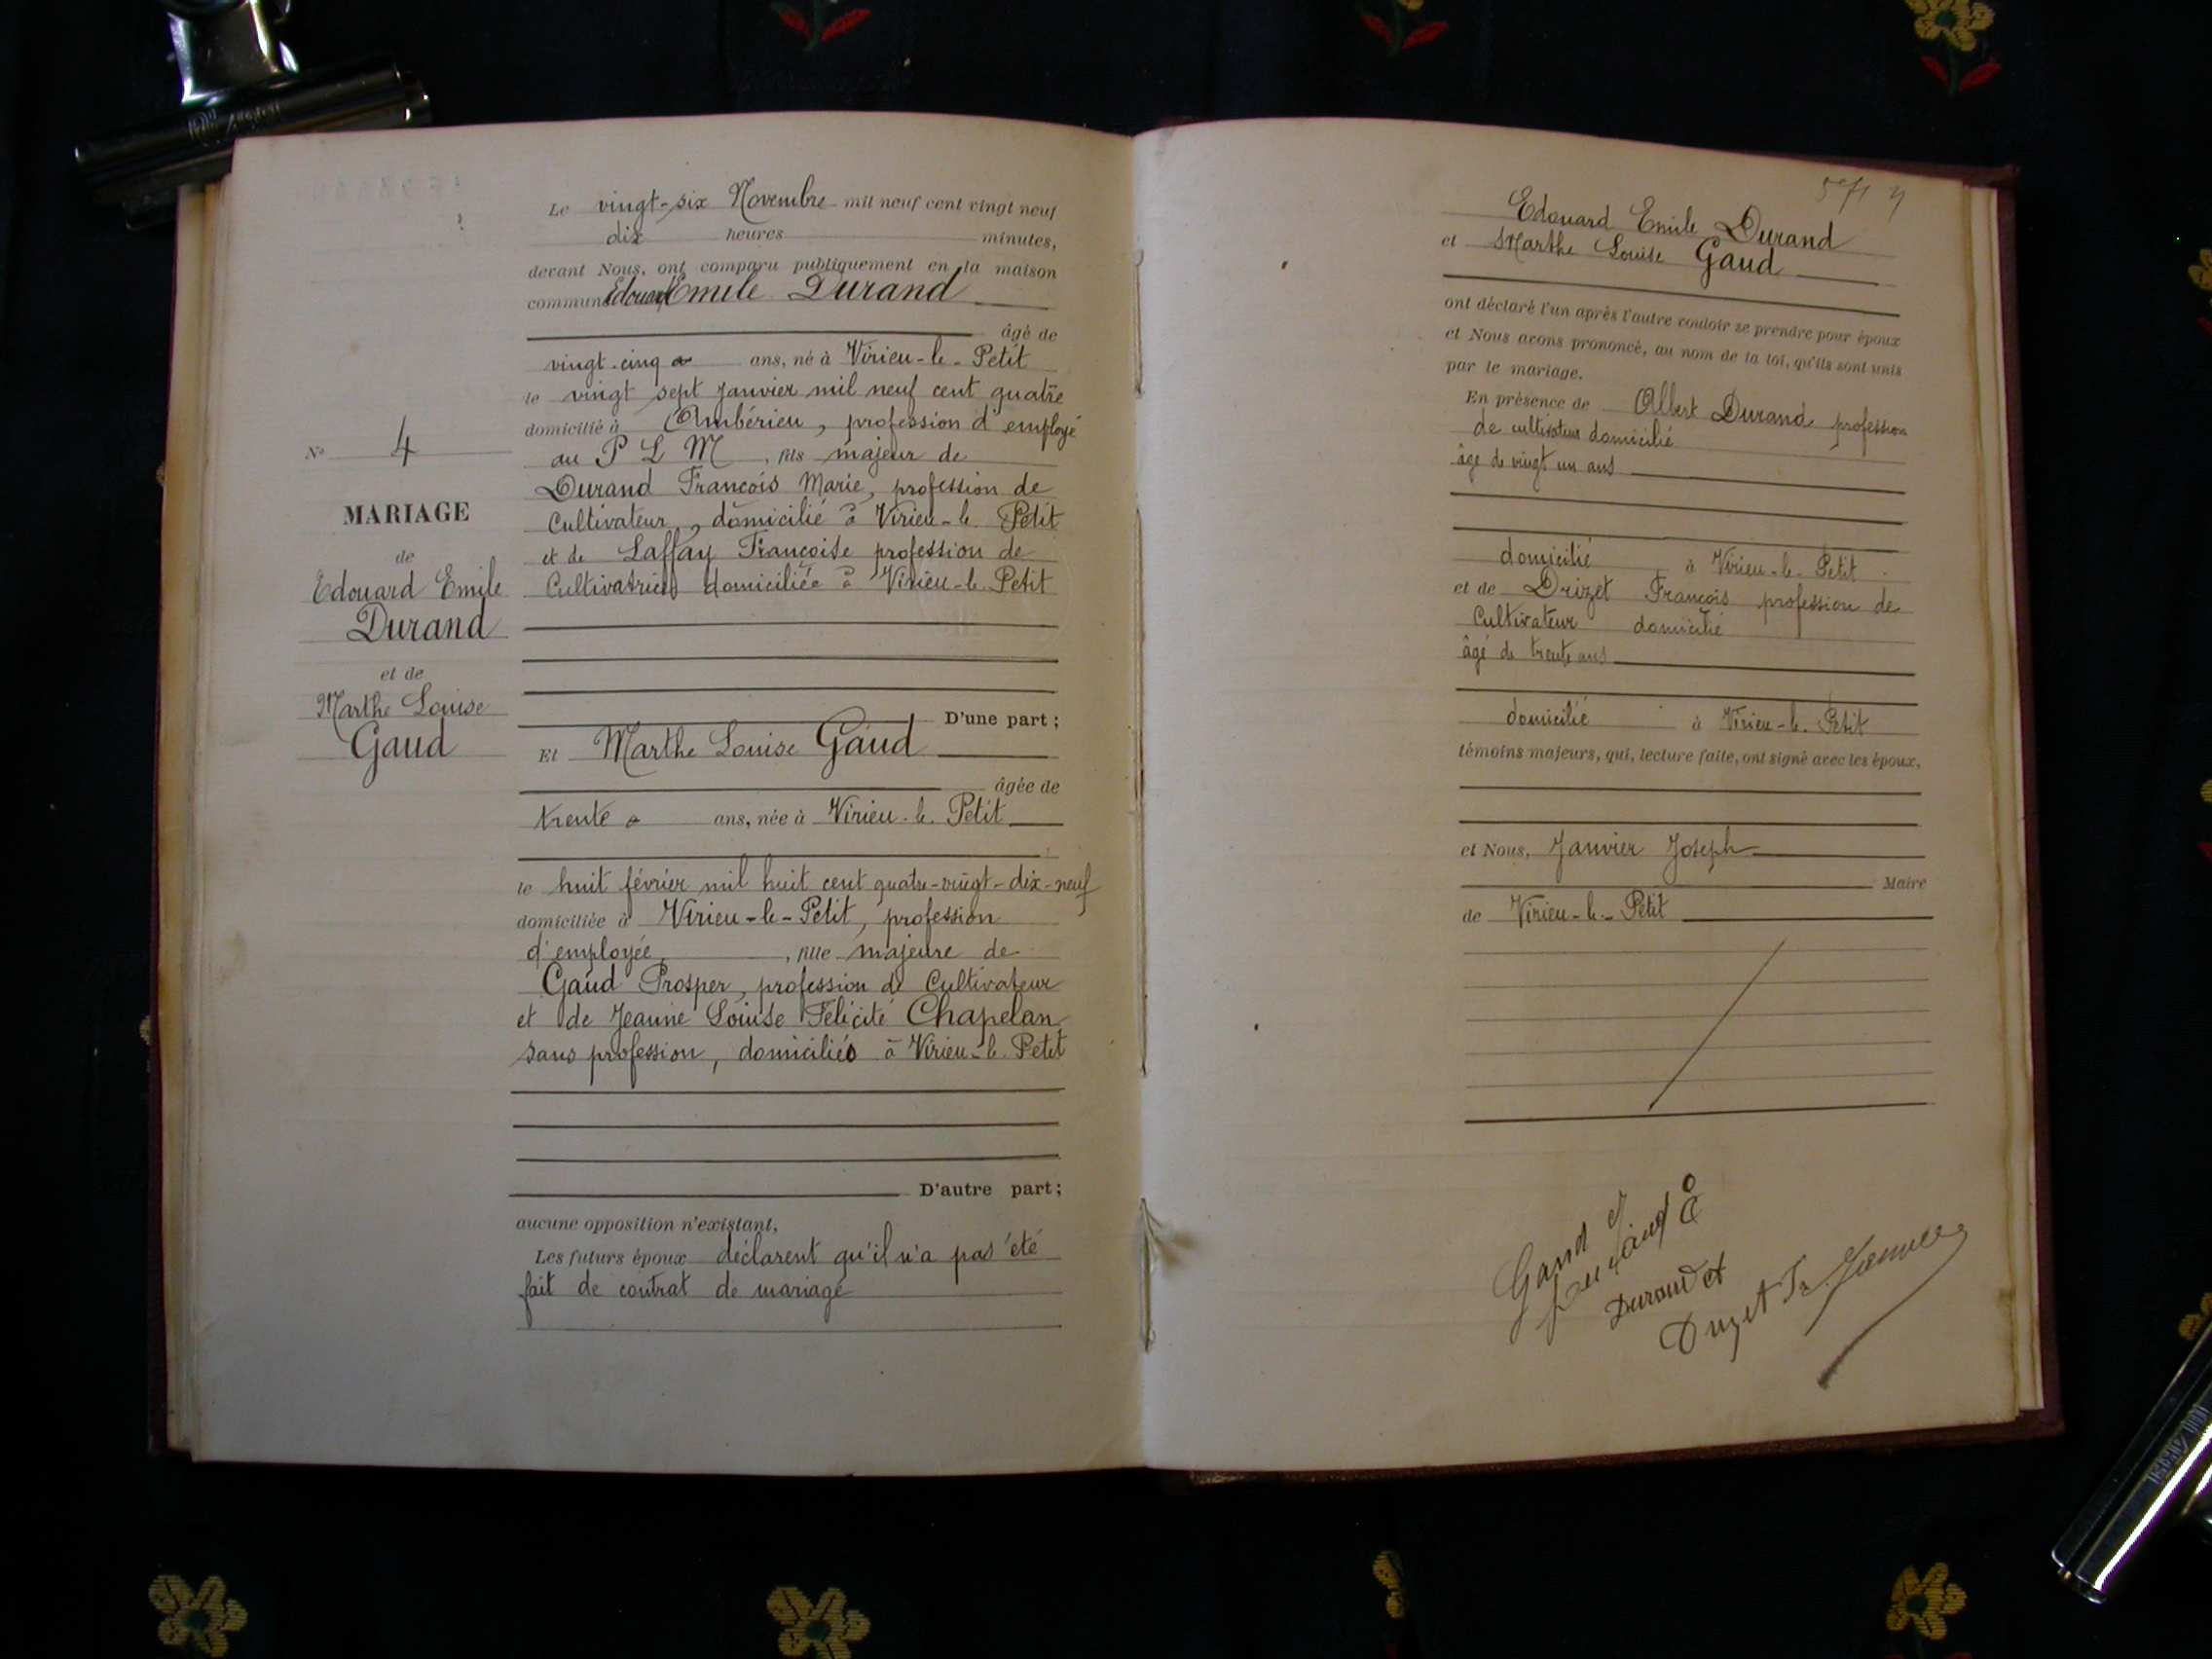 N° 4
MARIAGE
de
Edouard Emile
Durand
et de
Marthe Louise
Gaud
Le vingt-six Novembre mil neuf cent vingt neuf
dix heures minutes,
devant Nous, ont comparu publiquement en la maison
commune Edouard Emile Durand
âgé de
vingt-cinq ans, né à Virieu-le-Petit
le vingt sept Janvier mil neuf cent quatre
domicilié à Ambérieu, profession d'employé
au P L M, fils majeur de
Durand François Marie, profession de
Cultivateur, domicilié à Virieu-le-Petit
et de Laffay Françoise profession de
Cultivatrice domiciliée à Virieu-le-Petit
D'une part;
Et Marthe Louise Gaud
âgée de
trente ans, née à Virieu-le-Petit
le huit février mil huit cent quatre-vingt-dix-neuf
domiciliée à Virieu-le-Petit, profession
d'employée, fille majeure de
Gaud Prosper, profession de Cultivateur
et de Jeanne Louise Félicité Chapelan
sans profession, domiciliés à Virieu-le-Petit
D'autre part;
aucune opposition n'existant,
Les futurs époux déclarent qu'il n'a pas été
fait de contrat de mariage
Edouard Emile Durand
et Marthe Louise Gaud
ont déclaré l'un après l'autre vouloir se prendre pour époux
et Nous avons prononcé, au nom de la loi, qu'ils sont unis
par le mariage.
En présence de Albert Durand profession
de cultivateur domicilié
âgé de vingt un ans
domicilié à Virieu-le-Petit
et de Drizet François profession de
Cultivateur domicilié
âgé de trente ans
domicilié à Virieu-le-Petit
témoins majeurs, qui, lecture faite, ont signé avec les époux,
et Nous, Janvier Joseph
Maire
de Virieu-le-Petit
Gaud
Durand